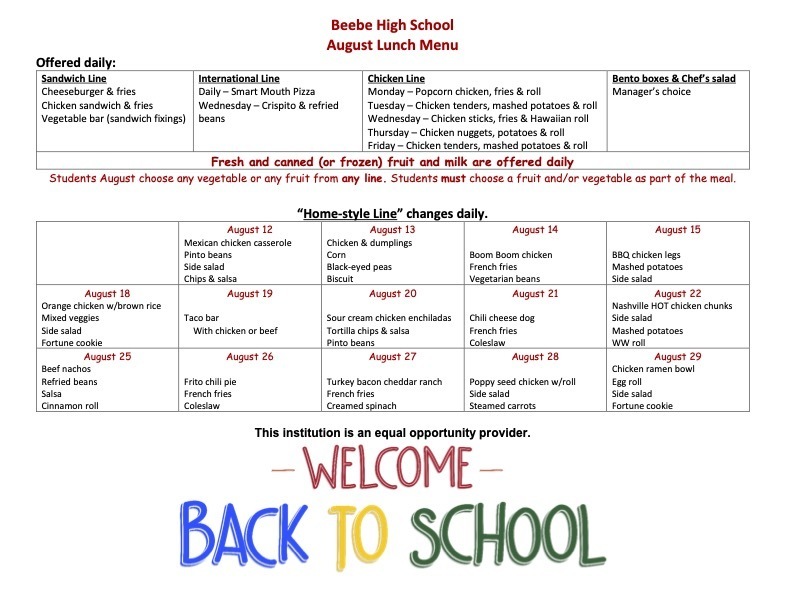 Beebe High School
August Lunch Menu
Offered daily:
Sandwich Line
Cheeseburger & fries
Chicken sandwich & fries
Vegetable bar (sandwich fixings)
International Line
Daily – Smart Mouth Pizza
Wednesday – Crispito & refried
beans
Chicken Line
Monday – Popcorn chicken, fries & roll
Tuesday – Chicken tenders, mashed potatoes & roll
Wednesday – Chicken sticks, fries & Hawaiian roll
Thursday – Chicken nuggets, potatoes & roll
Friday – Chicken tenders, mashed potatoes & roll
Bento boxes & Chef's salad
Manager's choice
Fresh and canned (or frozen) fruit and milk are offered daily
Students August choose any vegetable or any fruit from any line. Students must choose a fruit and/or vegetable as part of the meal.
“Home-style Line” changes daily.
August 12
Mexican chicken casserole
Pinto beans
Side salad
Chips & salsa
August 13
Chicken & dumplings
Corn
Black-eyed peas
Biscuit
August 14
Boom Boom chicken
French fries
Vegetarian beans
August 15
BBQ chicken legs
Mashed potatoes
Side salad
August 18
Orange chicken w/brown rice
Mixed veggies
Side salad
Fortune cookie
August 19
Taco bar
With chicken or beef
August 20
Sour cream chicken enchiladas
Tortilla chips & salsa
Pinto beans
August 21
Chili cheese dog
French fries
Coleslaw
August 22
Nashville HOT chicken chunks
Side salad
Mashed potatoes
WW roll
August 25
Beef nachos
Refried beans
Salsa
Cinnamon roll
August 26
Frito chili pie
French fries
Coleslaw
August 27
Turkey bacon cheddar ranch
French fries
Creamed spinach
August 28
Poppy seed chicken w/roll
Side salad
Steamed carrots
August 29
Chicken ramen bowl
Egg roll
Side salad
Fortune cookie
This institution is an equal opportunity provider.
WELCOME
BACK TO SCHOOL